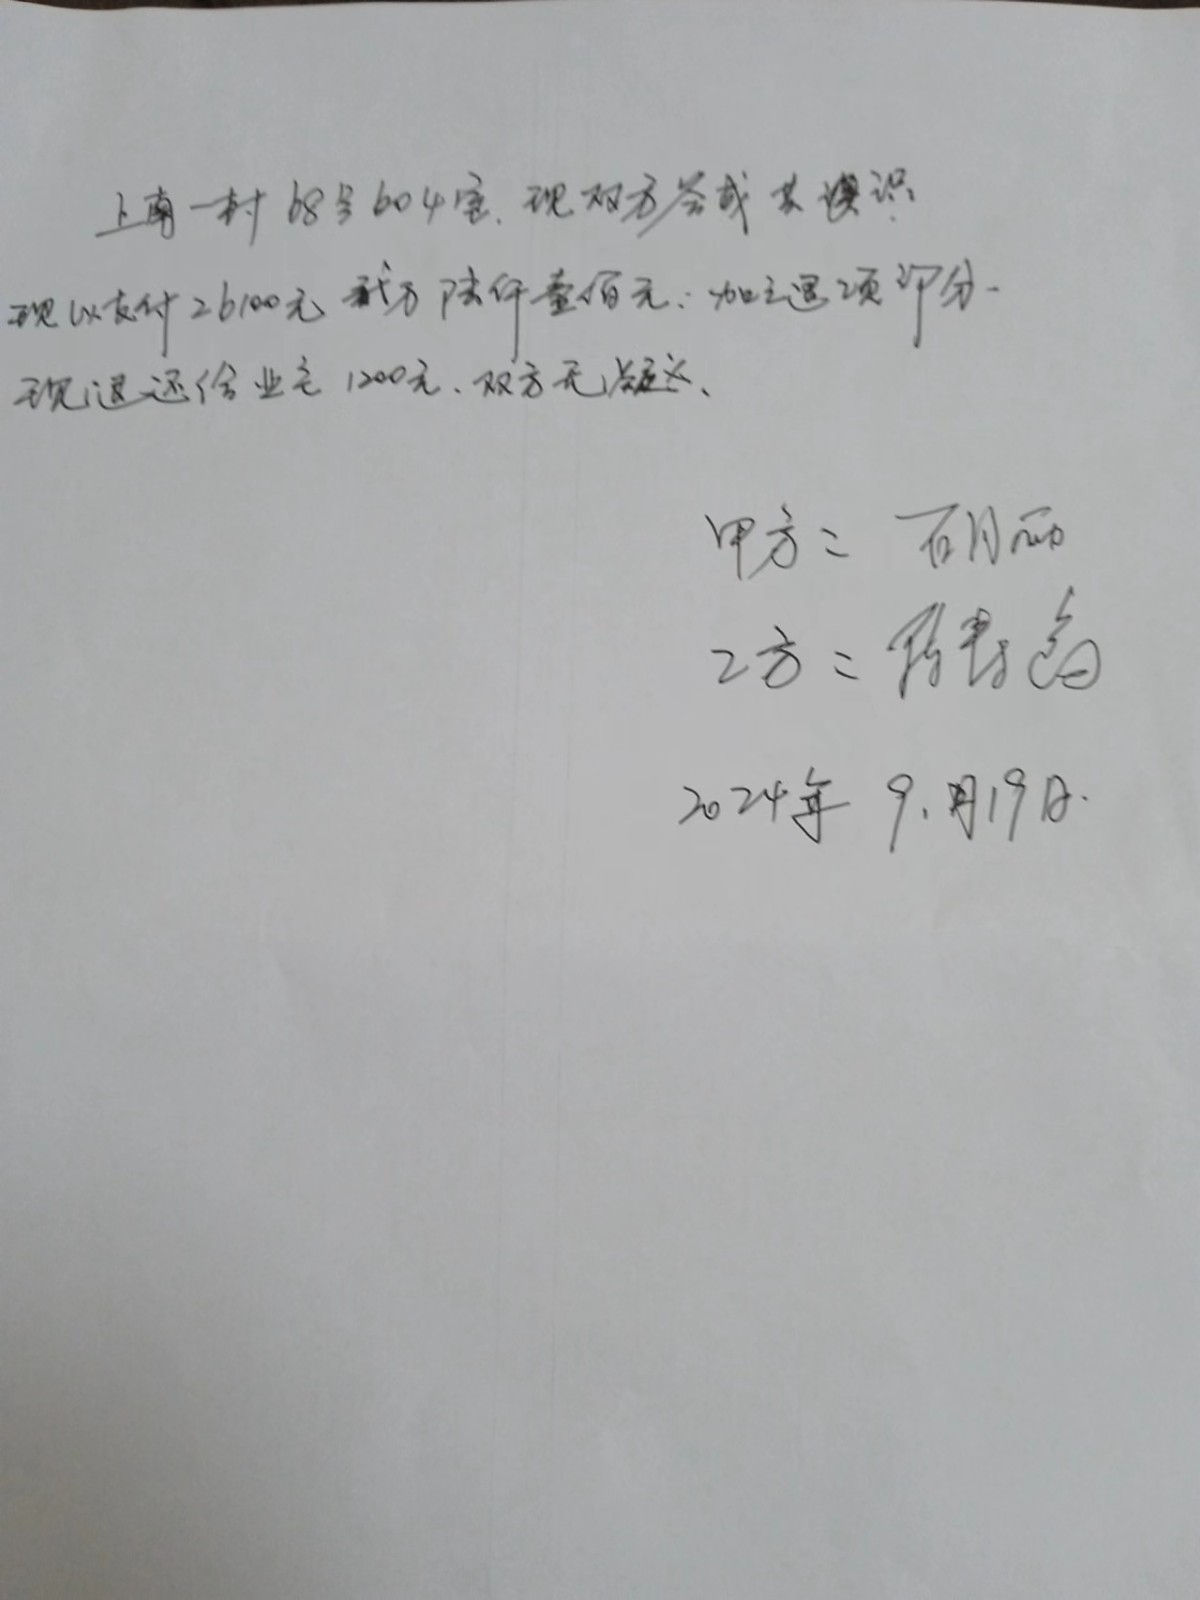 上南一村68号604室、现双方答成共识
现以支付26100元 贰万陆仟壹佰元: 加之退项部分-
现退还给业主1200元、双方无疑义、
甲方: 胡丽
乙方:
2024年 9.月19日.